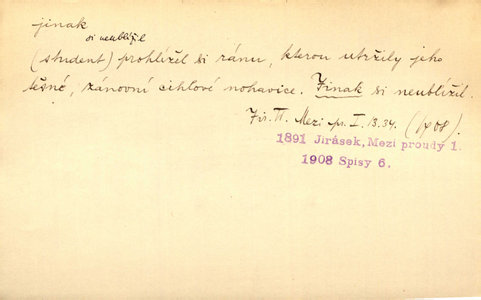 jinak
si neublížil
(student) prohlížel si ránu, kterou utržily jeho
těsné, zánovní cihlové nohavice. Jinak si neublížil.
Jir. II. Mezi pr. I. 13.34. (1908).
1891 Jirásek, Mezi proudy 1.
1908 Spisy 6.